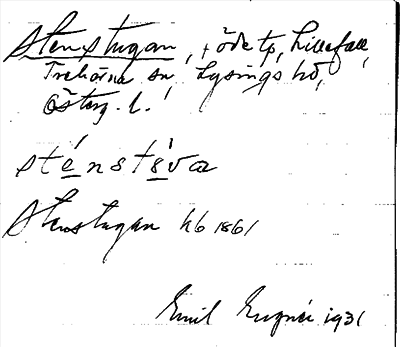 Stenstugan, t öde tp, Lillefall,
Trehörna sn, Lysings hd,
Österg. l.
sténstŭ̀va
Stenstugan hb 1861
Emil 1931